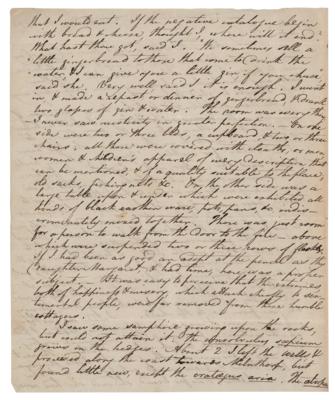 that I would eat. If the negative catalogue begin
with bread & cheese thought I, where will it end?
What hast thou got, said I. We sometimes sell a
little gingerbread to those that come to drink the
water, & I can give you a little gin if you chuse,
said she. Very well said I it is enough. I went
in & made a repast or dinner of gingerbread & drank
two glasses of gin & water. The room was every thing
I never saw variety in greater perfection. On one
side were two or three beds, a cupboard & two or three
chairs, all these were covered with cloaths, or men,
women & children's apparel of every description that
can be mentioned, & of a quality suitable to the place,
old sacks, fishing nets &c. On the other side was a
large table, upon & under which were exhibited all
kinds of black earthen ware, pots, pans &c indis-
criminately mixed together. There was just room
for a person to walk from the door to the fire – above
which were suspended two or three rows of
if I had been as good an adept at the pencil as thy
daughter Margaret, & had time, here was a proper
subject. It was easy to perceive that the extremes
both of happiness & misery, which Black chooses to sen-
timental people, were far removed from these humble
cottages.
I saw some samphire growing upon the rocks,
but could not attain it. The convolvulus sepium
grows in the hedges. About 2 I left the wells &
proceeded along the coast towards Milnthorp, but
found little new, except the crataegus aria. The